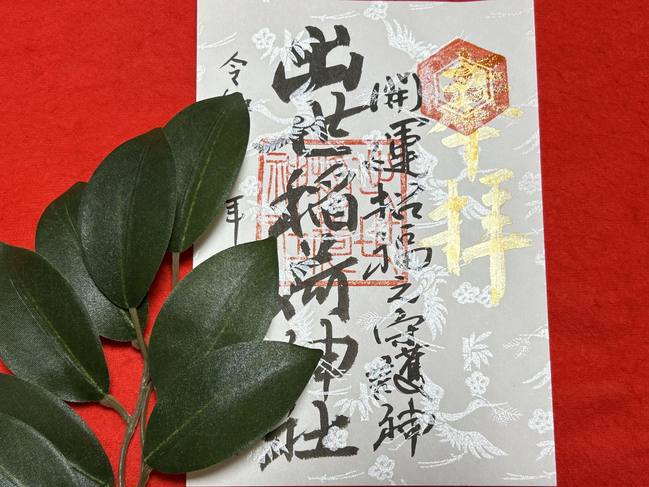 奉拝
開運招福之守護神
出世稲荷神社
令
年